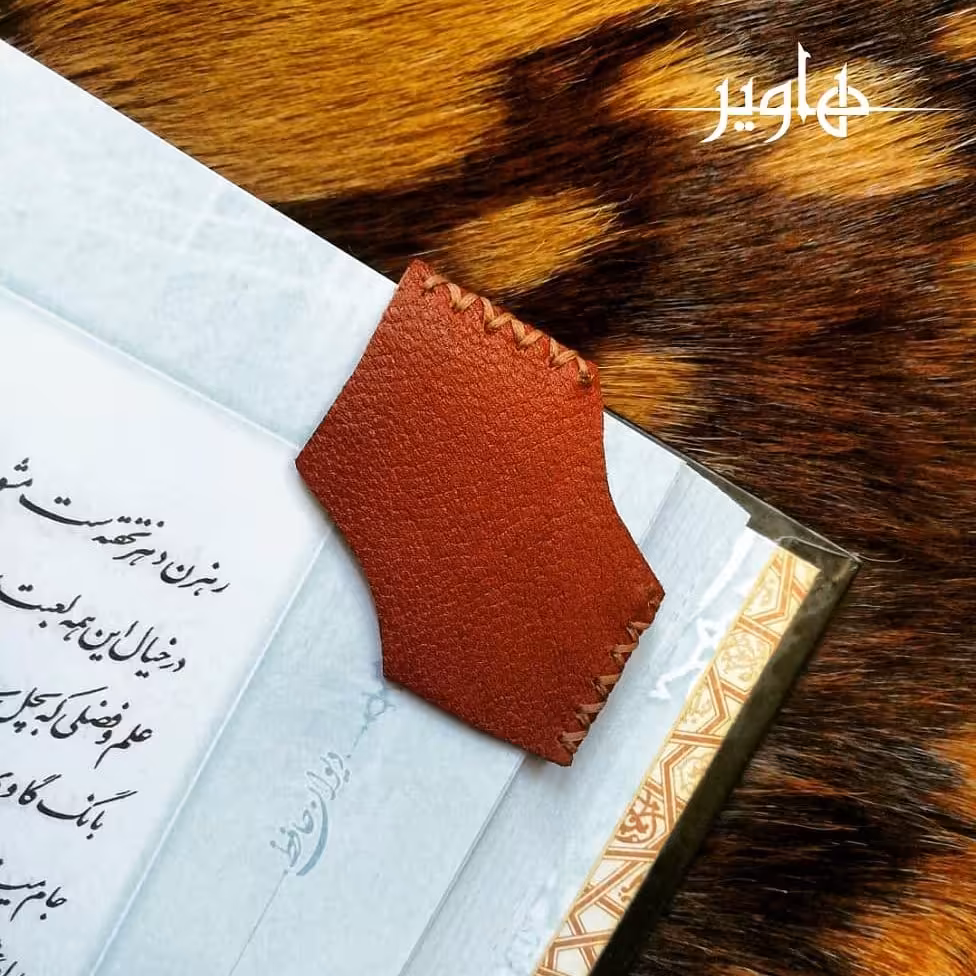 هاویر
رهزن دهر نخفته ست مشو
در خیال این همه لعبت
علم و فضلی که بچل
بانگ گاوی
جام
دیوان حافظ